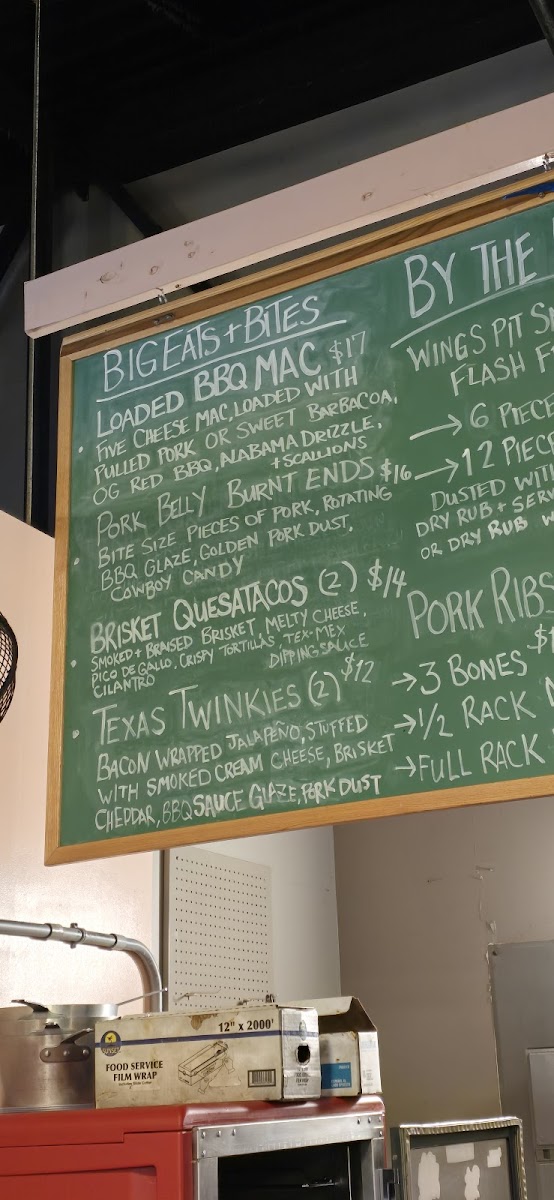 BIG EATS + BITES
LOADED BBQ MAC $17
FIVE CHEESE MAC, LOADED WITH
PULLED PORK OR SWEET BARBACOA,
OG RED BBQ, ALABAMA DRIZZLE,
+ SCALLIONS
PORK BELLY BURNT ENDS $16
BITE SIZE PIECES OF PORK, ROTATING
BBQ GLAZE, GOLDEN PORK DUST,
COWBOY CANDY
BRISKET QUESATACOS (2) $14
SMOKED + BRAISED BRISKET MELTY CHEESE,
PICO DE GALLO, CRISPY TORTILLAS, TEX-MEX
CILANTRO DIPPING SAUCE
TEXAS TWINKIES (2) $12
BACON WRAPPED JALAPEÑO, STUFFED
WITH SMOKED CREAM CHEESE, BRISKET
CHEDDAR, BBQ SAUCE GLAZE, PORK DUST
BY THE
WINGS PIT
FLASH
→ 6
→ 12
DUSTED
DRY RUB +
OR DRY RUB
PORK RIBS
→ 3 BONES
→ 1/2 RACK
→ FULL RACK
12" x 2000'
FOOD SERVICE
FILM WRAP